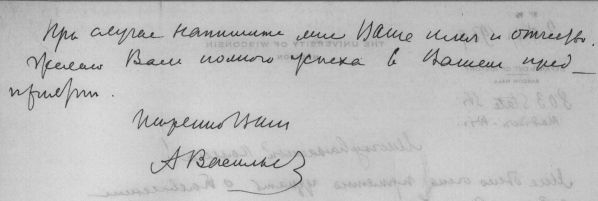 При случае напишите мне Ваше имя и отчество.
Желаю Вам полного успеха в Вашем пред-
приятии.
Искренно Ваш
А Васильев
THE UNIVERSITY OF WISCONSIN
803 State St.
Madison, Wis.
Мне было очень приятно